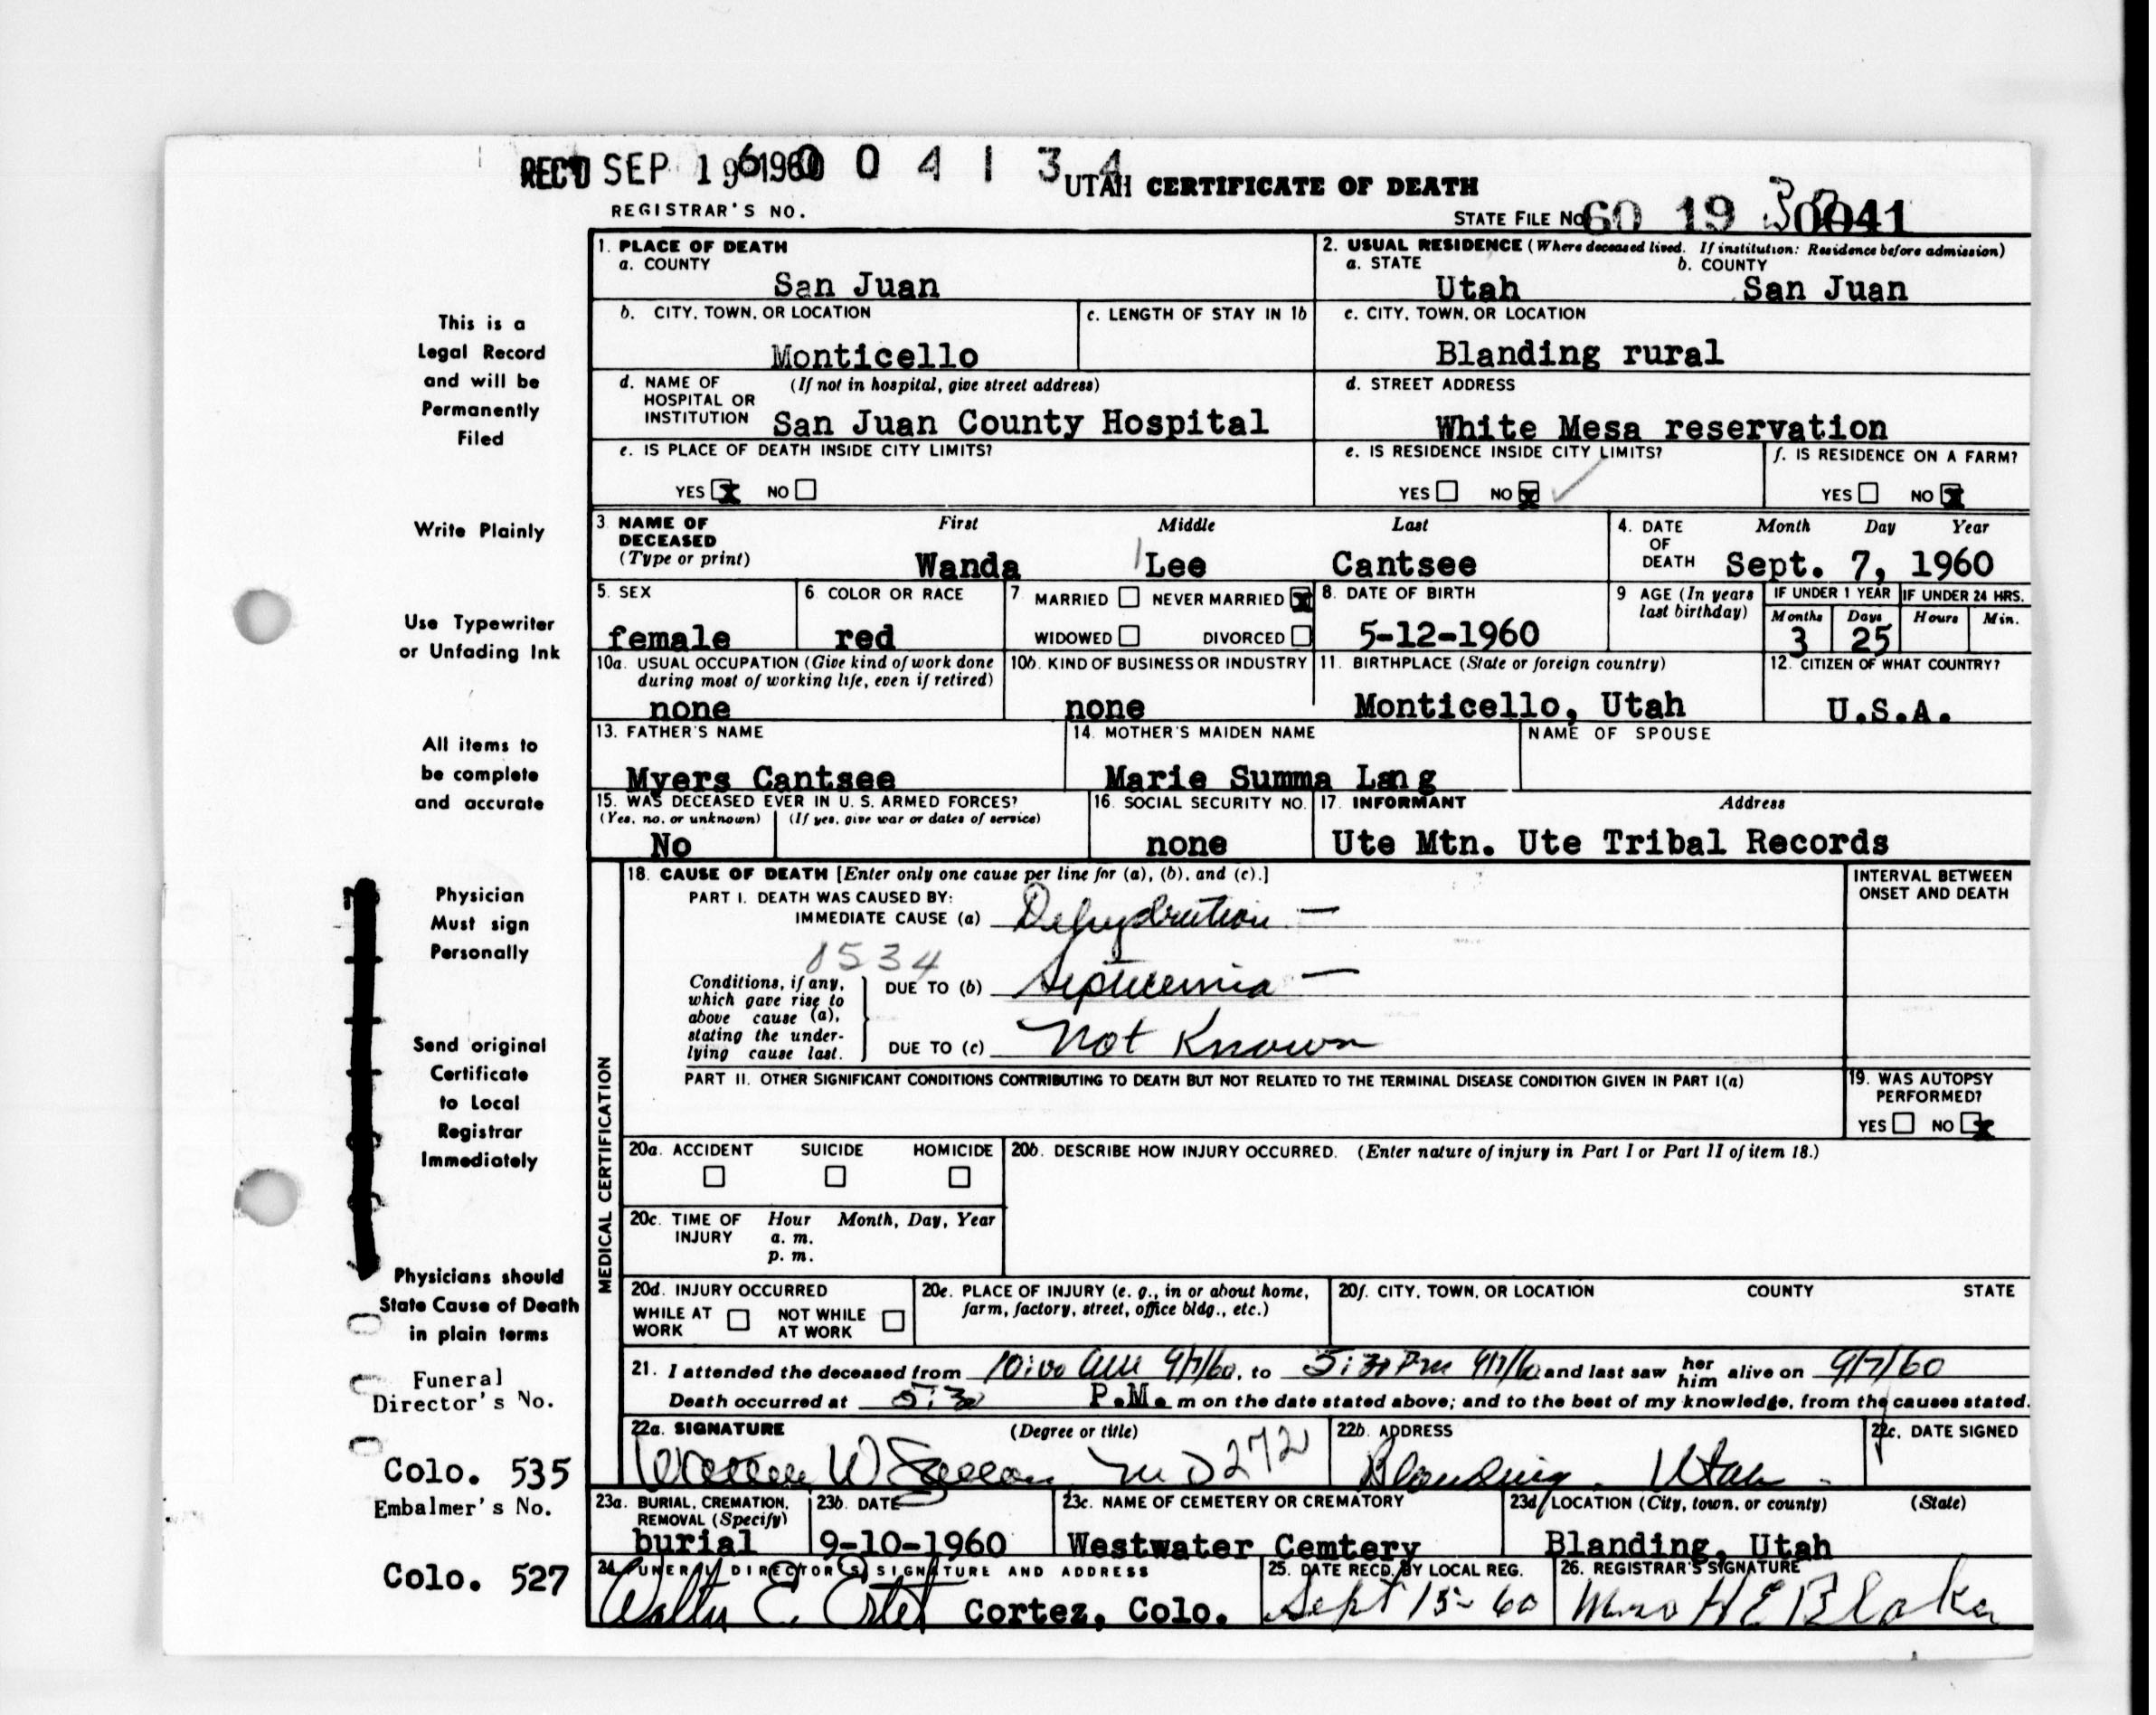 REC'D SEP 19 1960 6 0 0 4 1 3 4
UTAH CERTIFICATE OF DEATH
REGISTRAR'S NO.
STATE FILE NO. 60 19 0041
This is a
Legal Record
and will be
Permanently
Filed
Write Plainly
Use Typewriter
or Unfading Ink
All items to
be complete
and accurate
Physician
Must sign
Personally
Send original
Certificate
to Local
Registrar
Immediately
Physicians should
State Cause of Death
in plain terms
Funeral
Director's No.
Colo. 535
Embalmer's No.
Colo. 527
1. PLACE OF DEATH
a. COUNTY
San Juan
2. USUAL RESIDENCE (Where deceased lived. If institution: Residence before admission)
a. STATE b. COUNTY
Utah San Juan
b. CITY, TOWN, OR LOCATION
Monticello
c. LENGTH OF STAY IN 1b
c. CITY, TOWN, OR LOCATION
Blanding rural
d. NAME OF (If not in hospital, give street address)
HOSPITAL OR
INSTITUTION San Juan County Hospital
d. STREET ADDRESS
White Mesa reservation
e. IS PLACE OF DEATH INSIDE CITY LIMITS?
YES X NO
e. IS RESIDENCE INSIDE CITY LIMITS?
YES NO X
f. IS RESIDENCE ON A FARM?
YES NO X
3. NAME OF DECEASED First Middle Last
(Type or print) Wanda Lee Cantsee
4. DATE OF DEATH Month Day Year
Sept. 7, 1960
5. SEX
female
6. COLOR OR RACE
red
7. MARRIED NEVER MARRIED X
WIDOWED DIVORCED
8. DATE OF BIRTH
5-12-1960
9. AGE (In years last birthday)
IF UNDER 1 YEAR IF UNDER 24 HRS.
Months Days Hours Min.
3 25
10a. USUAL OCCUPATION (Give kind of work done
during most of working life, even if retired)
none
10b. KIND OF BUSINESS OR INDUSTRY
none
11. BIRTHPLACE (State or foreign country)
Monticello, Utah
12. CITIZEN OF WHAT COUNTRY?
U.S.A.
13. FATHER'S NAME
Myers Cantsee
14. MOTHER'S MAIDEN NAME
Marie Summa Lang
NAME OF SPOUSE
15. WAS DECEASED EVER IN U.S. ARMED FORCES?
(Yes, no, or unknown) (If yes, give war or dates of service)
No
16. SOCIAL SECURITY NO.
none
17. INFORMANT Address
Ute Mtn. Ute Tribal Records
MEDICAL CERTIFICATION
18. CAUSE OF DEATH [Enter only one cause per line for (a), (b), and (c).]
PART I. DEATH WAS CAUSED BY:
IMMEDIATE CAUSE (a) Dehydration —
INTERVAL BETWEEN
ONSET AND DEATH
0534
Conditions, if any,
which gave rise to
above cause (a),
stating the under-
lying cause last.
DUE TO (b) Septicemia —
DUE TO (c) Not Known
PART II. OTHER SIGNIFICANT CONDITIONS CONTRIBUTING TO DEATH BUT NOT RELATED TO THE TERMINAL DISEASE CONDITION GIVEN IN PART I(a)
19. WAS AUTOPSY
PERFORMED?
YES NO X
20a. ACCIDENT SUICIDE HOMICIDE
20b. DESCRIBE HOW INJURY OCCURRED. (Enter nature of injury in Part I or Part II of item 18.)
20c. TIME OF INJURY Hour Month, Day, Year
a. m.
p. m.
20d. INJURY OCCURRED
WHILE AT WORK NOT WHILE AT WORK
20e. PLACE OF INJURY (e. g., in or about home,
farm, factory, street, office bldg., etc.)
20f. CITY, TOWN, OR LOCATION COUNTY STATE
21. I attended the deceased from 10:00 am 9/7/60, to 5:30 Pm 9/7/60 and last saw her him alive on 9/7/60
Death occurred at 5:30 P.M. m on the date stated above; and to the best of my knowledge, from the causes stated.
22a. SIGNATURE (Degree or title)
W MD 272
22b. ADDRESS
Blanding, Utah
22c. DATE SIGNED
23a. BURIAL, CREMATION,
REMOVAL (Specify)
burial
23b. DATE
9-10-1960
23c. NAME OF CEMETERY OR CREMATORY
Westwater Cemtery
23d. LOCATION (City, town, or county) (State)
Blanding, Utah
24. FUNERAL DIRECTOR'S SIGNATURE AND ADDRESS
Walter E. Ertel Cortez, Colo.
25. DATE RECD. BY LOCAL REG.
Sept 15-60
26. REGISTRAR'S SIGNATURE
Mrs H E Blake